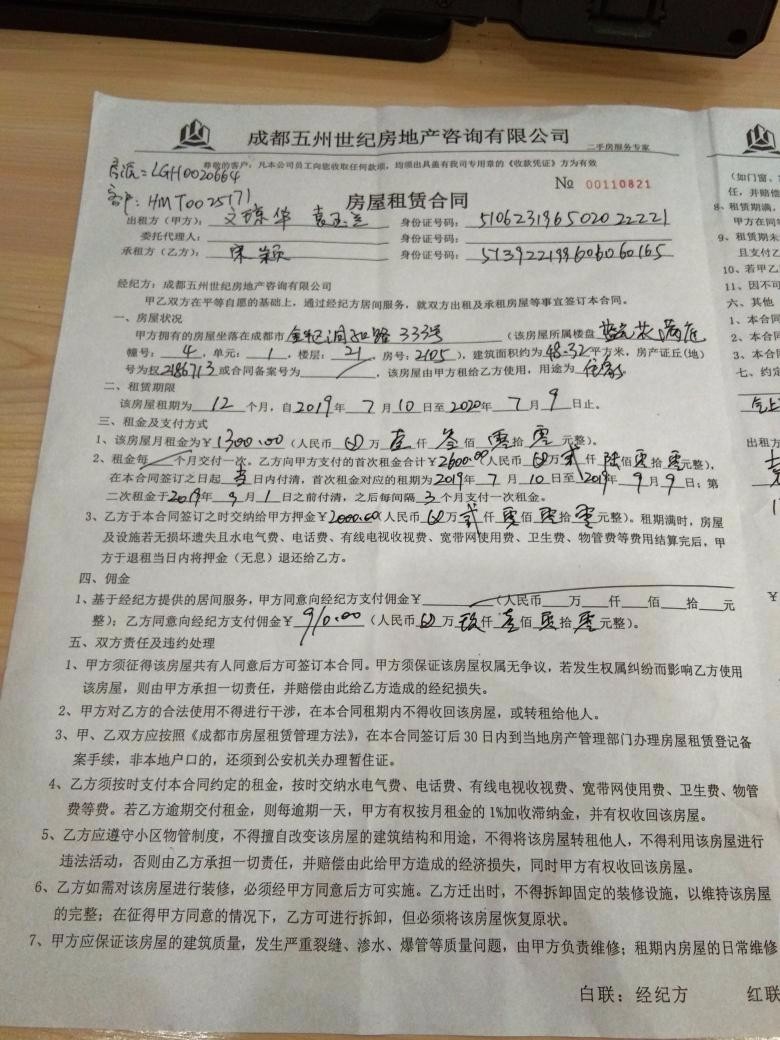 成都五州世纪房地产咨询有限公司 二手房服务专家
房源:LGH0020664
尊敬的客户:凡本公司员工向您收取任何款项,均须出具盖有我司专用章的《收款凭证》方为有效
客户:HMT0025171
房屋租赁合同 № 00110821
出租方(甲方): 文琼华 身份证号码:
委托代理人: 身份证号码:
承租方(乙方): 宋颖 身份证号码:
经纪方:成都五州世纪房地产咨询有限公司
甲乙双方在平等自愿的基础上,通过经纪方居间服务,就双方出租及承租房屋等事宜签订本合同。
一、房屋状况
甲方拥有的房屋坐落在成都市 路333号 (该房屋所属楼盘
幢号:4,单元:1,楼层:21,房号:2105),建筑面积约为48.32平方米,房产证丘(地)
号为权2186713或合同备案号为 / ,该房屋由甲方租给乙方使用,用途为
二、租赁期限
该房屋租期为12个月,自2019年7月10日至2020年7月9日止。
三、租金及支付方式
1、该房屋月租金为¥1300.00(人民币 万壹仟叁佰零拾零元整)。
2、租金每 个月交付一次。乙方向甲方支付的首次租金合计¥2600.00人民币 万贰仟陆佰零拾零元整),
在本合同签订之日起 日内付清,首次租金对应的租期为2019年7月10日至2019年9月9日;第
二次租金于2019年9月1日之前付清,之后每间隔3个月支付一次租金。
3、乙方于本合同签订之时交纳给甲方押金¥2000.00(人民币 万贰仟零佰零拾零元整)。租期满时,房屋
及设施若无损坏遗失且水电气费、电话费、有线电视收视费、宽带网使用费、卫生费、物管费等费用结算完后,甲
方于退租当日内将押金(无息)退还给乙方。
四、佣金
1、基于经纪方提供的居间服务,甲方同意向经纪方支付佣金¥ (人民币 万 仟 佰 拾 元
整);乙方同意向经纪方支付佣金¥910.00(人民币 万玖仟壹佰零拾零元整)。
五、双方责任及违约处理
1、甲方须征得该房屋共有人同意后方可签订本合同。甲方须保证该房屋权属无争议,若发生权属纠纷而影响乙方使用
该房屋,则由甲方承担一切责任,并赔偿由此给乙方造成的经纪损失。
2、甲方对乙方的合法使用不得进行干涉,在本合同租期内不得收回该房屋,或转租给他人。
3、甲、乙双方应按照《成都市房屋租赁管理方法》,在本合同签订后30日内到当地房产管理部门办理房屋租赁登记备
案手续,非本地户口的,还须到公安机关办理暂住证。
4、乙方须按时支付本合同约定的租金,按时交纳水电气费、电话费、有线电视收视费、宽带网使用费、卫生费、物管
费等费。若乙方逾期交付租金,则每逾期一天,甲方有权按月租金的1%加收滞纳金,并有权收回该房屋。
5、乙方应遵守小区物管制度,不得擅自改变该房屋的建筑结构和用途,不得将该房屋转租他人,不得利用该房屋进行
违法活动,否则由乙方承担一切责任,并赔偿由此给甲方造成的经济损失,同时甲方有权收回该房屋。
6、乙方如需对该房屋进行装修,必须经甲方同意后方可实施。乙方迁出时,不得拆卸固定的装修设施,以维持该房屋
的完整;在征得甲方同意的情况下,乙方可进行拆卸,但必须将该房屋恢复原状。
7、甲方应保证该房屋的建筑质量,发生严重裂缝、渗水、爆管等质量问题,由甲方负责维修;租期内房屋的日常维修
白联:经纪方 红联
(如门窗、
任,并赔偿
8、租赁期满,
甲方在同等
9、租赁期未
且支付乙
10、若甲乙
11、因不可
六、其他
1、本合同
2、本合同
3、本合同
七、约定
出租方
¥